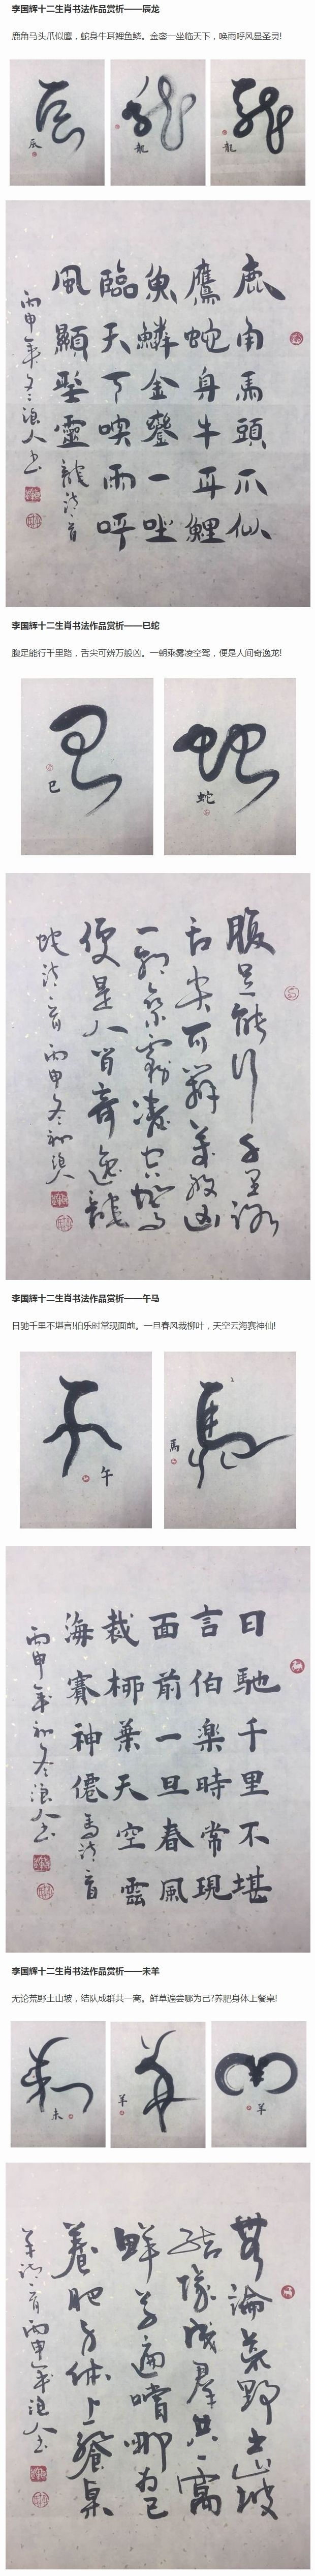 李国辉十二生肖书法作品赏析——辰龙
鹿角马头爪似鹰，蛇身牛耳鲤鱼鳞。金銮一坐临天下，唤雨呼风显圣灵!
辰
龍
龍
鹿角馬頭爪似
鷹蛇身牛耳鯉
魚鱗金鑾一坐
臨天下喚雨呼
風顯聖靈龍诗一首
丙申年冬浪人书
李国辉十二生肖书法作品赏析——巳蛇
腹足能行千里路，舌尖可辨万般凶。一朝乘雾凌空驾，便是人间奇逸龙!
巳
蛇
腹足能行千里路
舌尖可辨萬般凶
一朝乘霧凌空駕
便是人間奇逸龍
蛇诗一首丙申冬初浪人
李国辉十二生肖书法作品赏析——午马
日驰千里不堪言!伯乐时常现面前。一旦春风裁柳叶，天空云海赛神仙!
午
馬
日馳千里不堪
言伯楽時常現
面前一旦春風
裁柳葉天空雲
海賽神僊馬诗一首
丙申年初冬浪人书
李国辉十二生肖书法作品赏析——未羊
无论荒野土山坡，结队成群共一窝。鲜草遍尝哪为己?养肥身体上餐桌!
未
羊
羊
無論荒野土山坡
結隊成群共一窩
鮮草遍嚐哪为己
養肥身体上餐桌
羊诗一首丙申年浪人书